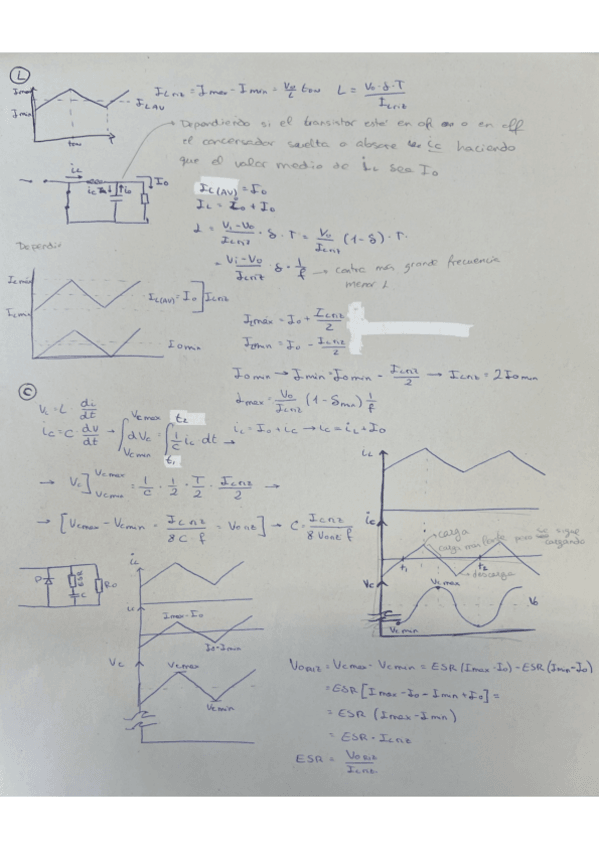 L
Imax
Imin
ILAV
ton
T
ILriz = Imax - Imin = Vo/L ton   L = Vo·δ·T/ILriz
Dependiendo si el transistor esté en on o en off
el condensador suelta o absorbe ic haciendo
que el valor medio de iL sea Io
iL
Io
IL(AV) = Io
L = Vi-Vo/ILriz · δ · T = Vo/ILriz (1-δ) · T
= Vi-Vo/ILriz · δ · 1/f → más grande frecuencia
menor L
Dependi
IL(AV) = Io
ILriz
Io min
ILmáx = Io + ILriz/2
ILmin = Io - ILriz/2
Io min → Imin = Iomin - ILriz/2 → ILriz = 2 Io min
Lmax = Vo/ILriz (1-δmin) 1/f
C
VL = L · diL/dt
ic = C · dv/dt → ∫ Vcmin Vcmax dVc = ∫ t1 t2 1/C ic dt →
→ Vc] Vcmin Vcmax = 1/C · 1/2 · T/2 · ILriz/2 →
→ [Vcmax - Vcmin = ILriz/8·C·f = Vont] → C = ILriz/8 Vont f
iL
ic
carga
t1
t2
cargando
descarga
Vc
Vcmax
Vo
Vcmin
D
ESR
C
Ro
iL
ic
Imax-Io
Io-Imin
Vc
Vcmax
Vcmin
Voriz = Vcmax - Vcmin = ESR (Imax-Io) - ESR (Imin-Io)
= ESR [Imax - Io - Imin + Io] =
= ESR (Imax - Imin)
= ESR · ILriz
ESR = Voriz/ILriz